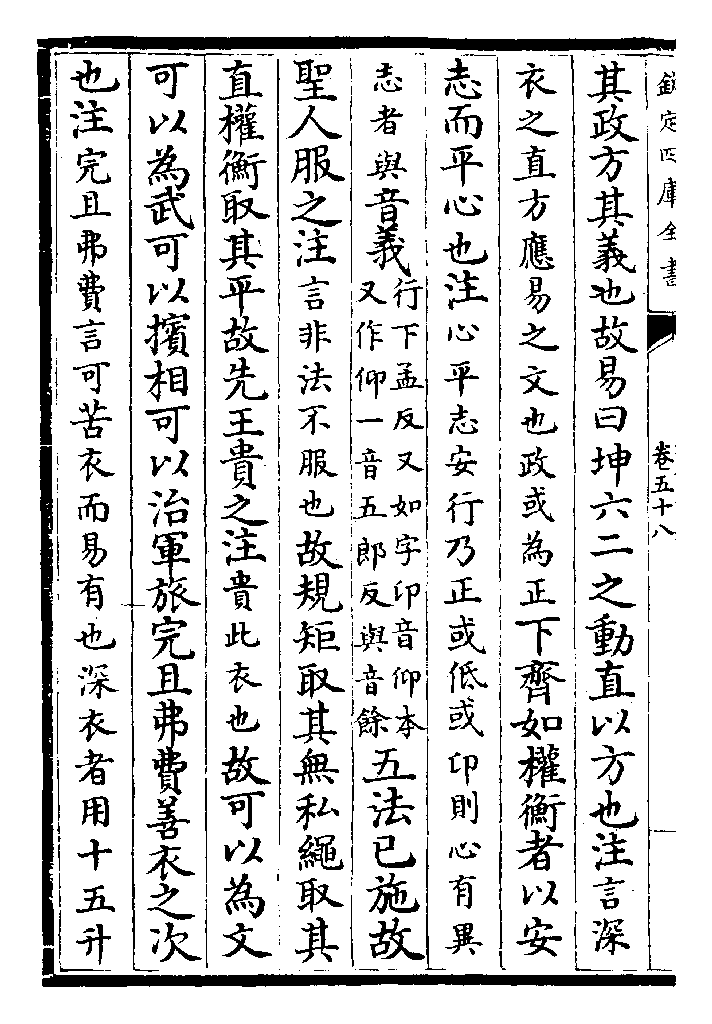 欽定四庫全書
卷五十八
其政方其義也故易曰坤六二之動直以方也注言深
衣之直方應易之文也政或為正下齊如權衡者以安
志而平心也注心平志安行乃正或低或卬則心有異
志者與音義行下孟反又如字卬音仰本
又作仰一音五郎反與音餘五法已施故
聖人服之注言非法不服也故規矩取其無私繩取其
直權衡取其平故先王貴之注貴此衣也故可以為文
可以為武可以擯相可以治軍旅完且弗費善衣之次
也注完且弗費言可苦衣而易有也深衣者用十五升